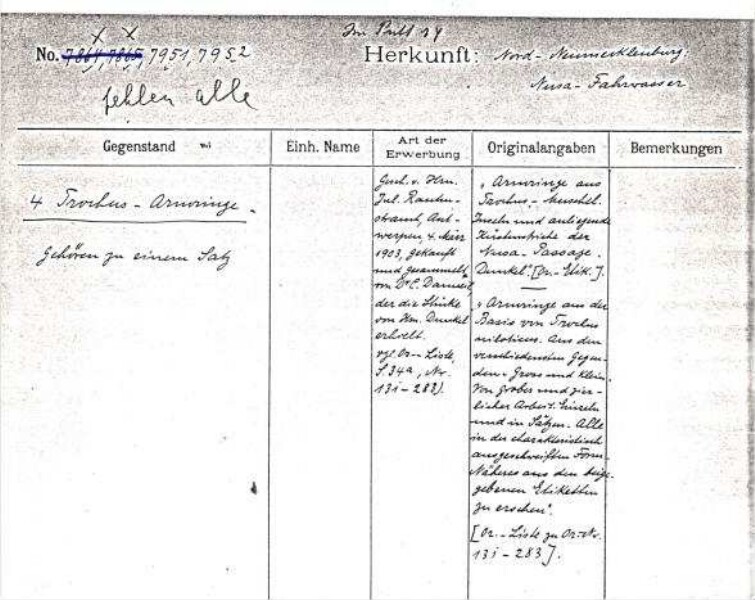 Im Pult 24
No. 7864, 7865, 7951, 7952
Herkunft: Nord-Neumecklenburg.
Nusa-Fahrwasser
fehlen alle
Gegenstand
Einh. Name
Art der Erwerbung
Originalangaben
Bemerkungen
4 Trochus-Armringe.
Gehören zu einem Satz
Gesch. v. Hrn.
Jul.
Ant-
werpen, 4. März
1903, gekauft
und gesammelt
von Dr C.
der die Stücke
von Hrn. Dunkel
erhielt.
vgl. Or-Liste,
S. 34a, Nr.
131-283).
"Armringe aus
Trochus-Muschel.
Inseln und anliegende
Küstenstriche der
Nusa-Passage.
Dunkel". [Or.-Etik.].
"Armringe aus der
Basis von Trochus
niloticus. Aus den
verschiedensten Gegen-
den. Gross und Klein.
Von grober und zier-
licher Arbeit. Einzeln
und in Sätzen. Alle
in der charakteristisch
ausgeschweiften Form.
Näheres aus den beige-
gebenen Etiketten
zu ersehen".
[Or.-Liste zu Or-Nr.
131-283].